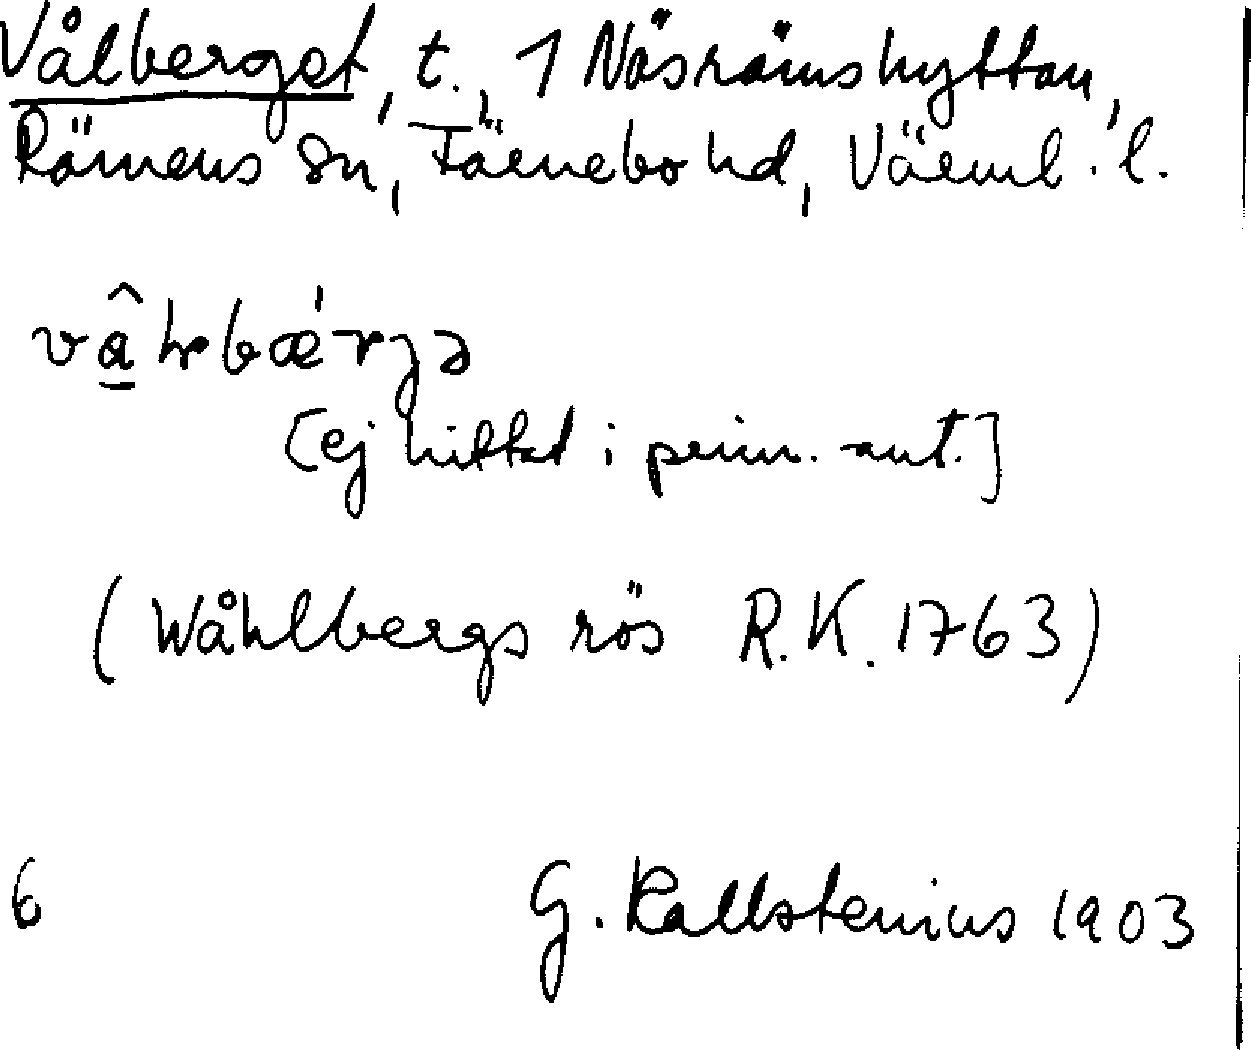 Vålberget, t., 1 Näsrämshyttan,
Rämens sn, Färnebo hd, Värml. l.
[ej hittad i prim. ant.]
(Wåhlbergs rös R.K. 1763)
6 G. Kallstenius 1903